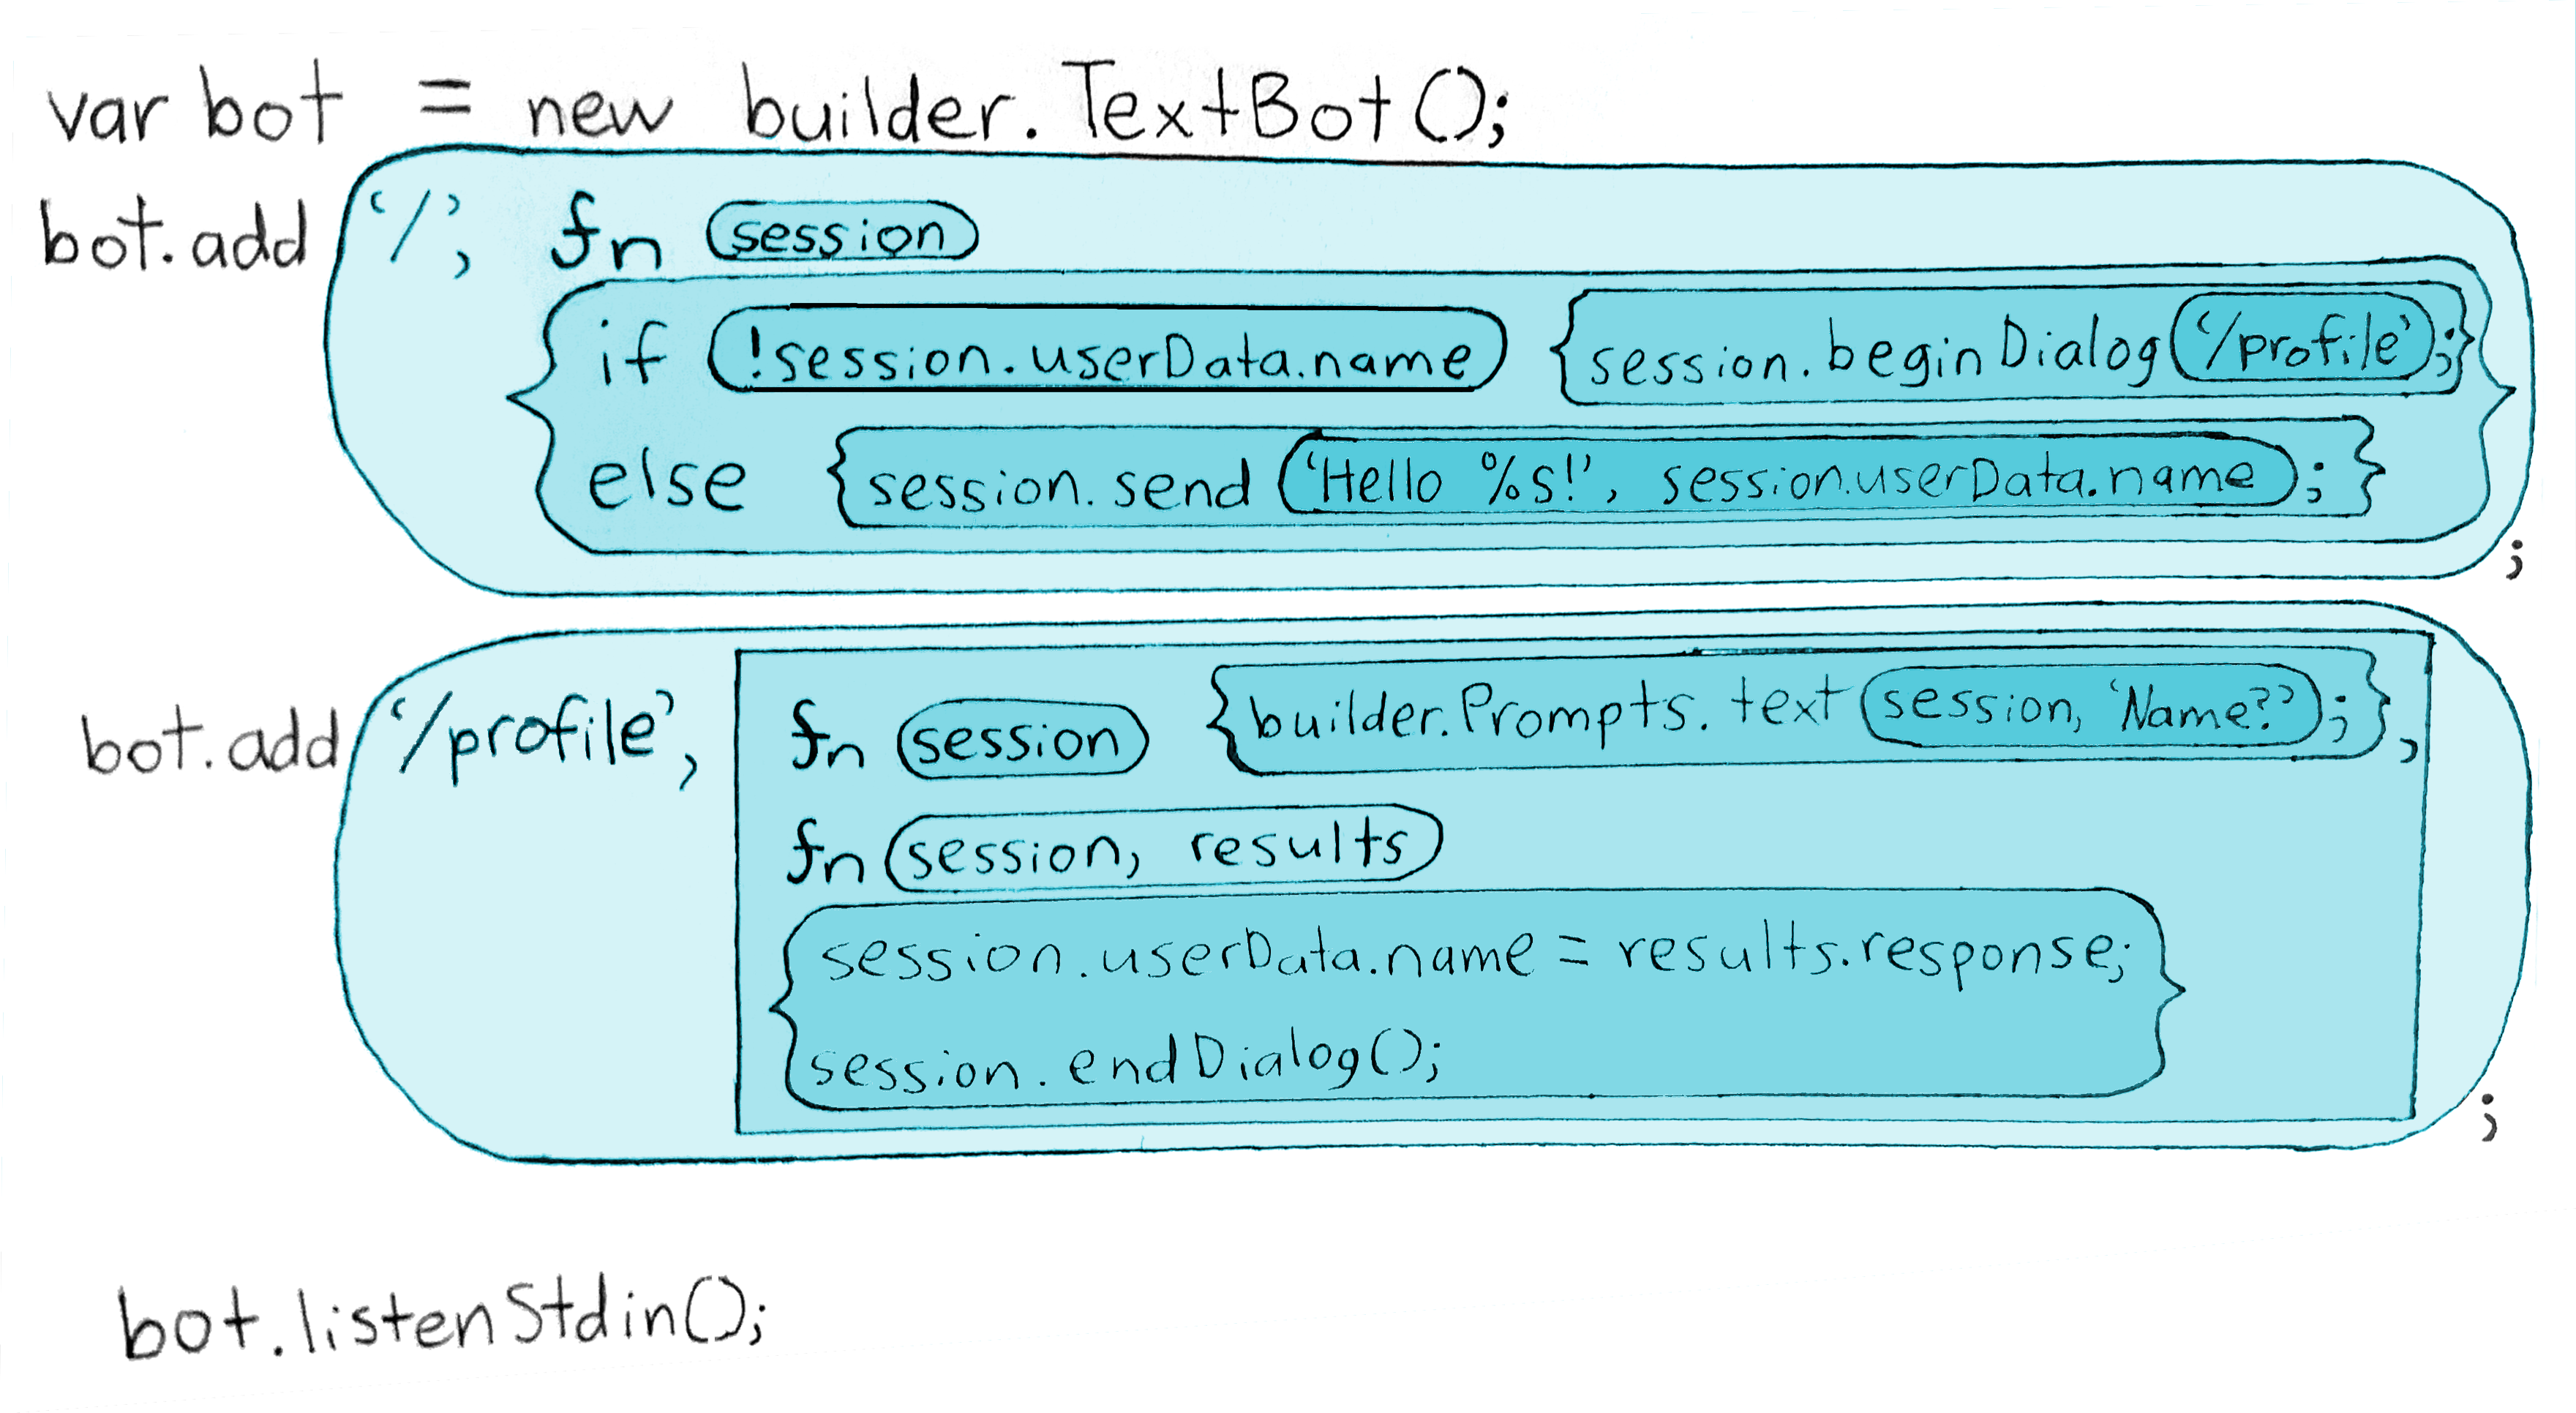 var bot = new builder.TextBot();
bot.add ('/', fn (session)
{if (!session.userData.name) {session.beginDialog('/profile');}
else {session.send ('Hello %s!', session.userData.name);}});
bot.add('/profile', [fn (session) {builder.Prompts.text(session, 'Name?');},
fn (session, results)
{session.userData.name = results.response;
session.endDialog();}]);
bot.listenStdin();